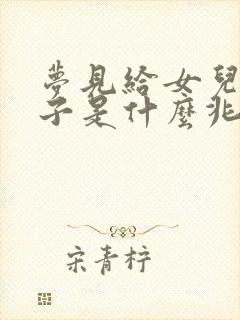 夢見給女兒
子是什麼兆
宋青柠